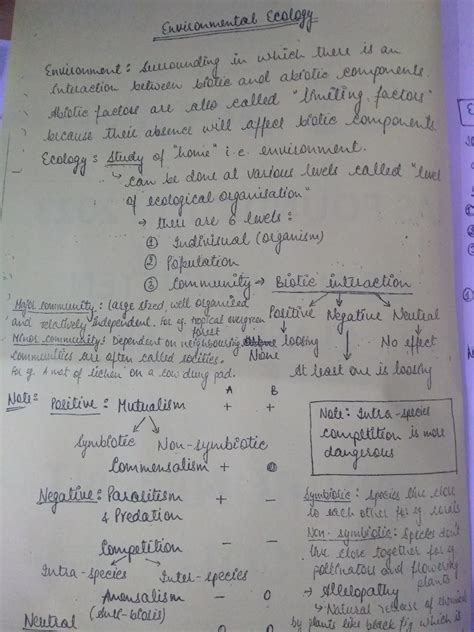 Environmental Ecology
Environment: Surrounding in which there is an
interaction between biotic and abiotic components.
Abiotic factors are also called "limiting factors"
because their absence will affect biotic components.
Ecology: Study of "home" i.e. environment.
↳ can be done at various levels called "level
of ecological organisation"
→ there are 6 levels:
① Individual (organism)
② Population
③ Community → Biotic interaction
Major community: large sized, well organised
and relatively independent. For eg. tropical evergreen
forest
Minor community: Dependent on neighbouring
communities are often called
For eg. A mat of lichen on a cow dung pad.
Positive Negative Neutral
loosing No effect
None
At least one is loosing
A B
Note: Positive: Mutualism + +
Symbiotic Non-symbiotic
Commensalism + 0
Negative: Parasitism + -
& Predation
Competition - -
Intra-species Inter-species
Amensalism - 0
(Anti-biosis)
Neutral 0 0
Note: Intra-species
competition is more
dangerous
Symbiotic: species live close
to each other for eg. corals
Non-symbiotic: Species don't
live close together for eg
pollinators and flowering
plants
→ Allelopathy
↳ Natural release of chemical
by plants like black fig which is